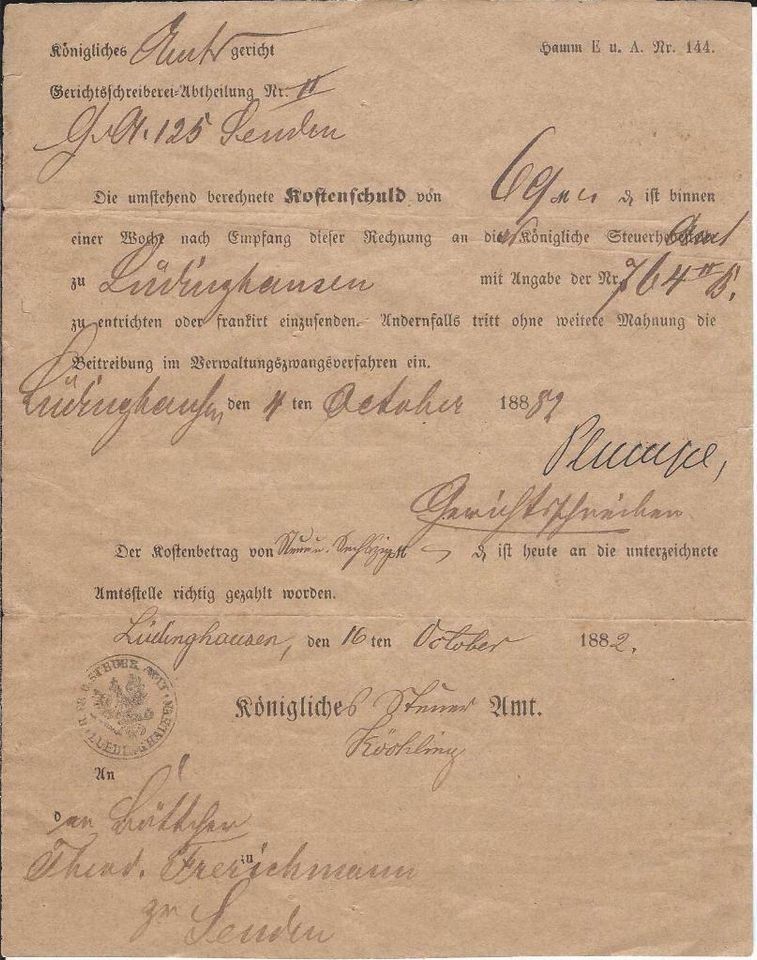 Königliches Amtsgericht
Hamm E u. A. Nr. 144.
Gerichtsschreiberei-Abtheilung Nr. II
125 Senden
Die umstehend berechnete Kostenschuld von 69 M ₰ ist binnen
einer Woche nach Empfang dieser Rechnung an das Königliche Steuer Amt
zu Lüdinghausen mit Angabe der Nr. 764
zu entrichten oder frankirt einzusenden. Andernfalls tritt ohne weitere Mahnung die
Beitreibung im Verwaltungszwangsverfahren ein.
Lüdinghausen, den 4 ten October 1882
Plumpe,
Gerichtsschreiber
Der Kostenbetrag von Neun u. Sechszig M ₰ ist heute an die unterzeichnete
Amtsstelle richtig gezahlt worden.
Lüdinghausen, den 16 ten October 1882.
Königliches Steuer Amt.
STEUER AMT LUEDINGHAUSEN
An
den Böttcher
Theod. Frerichmann
zu Senden